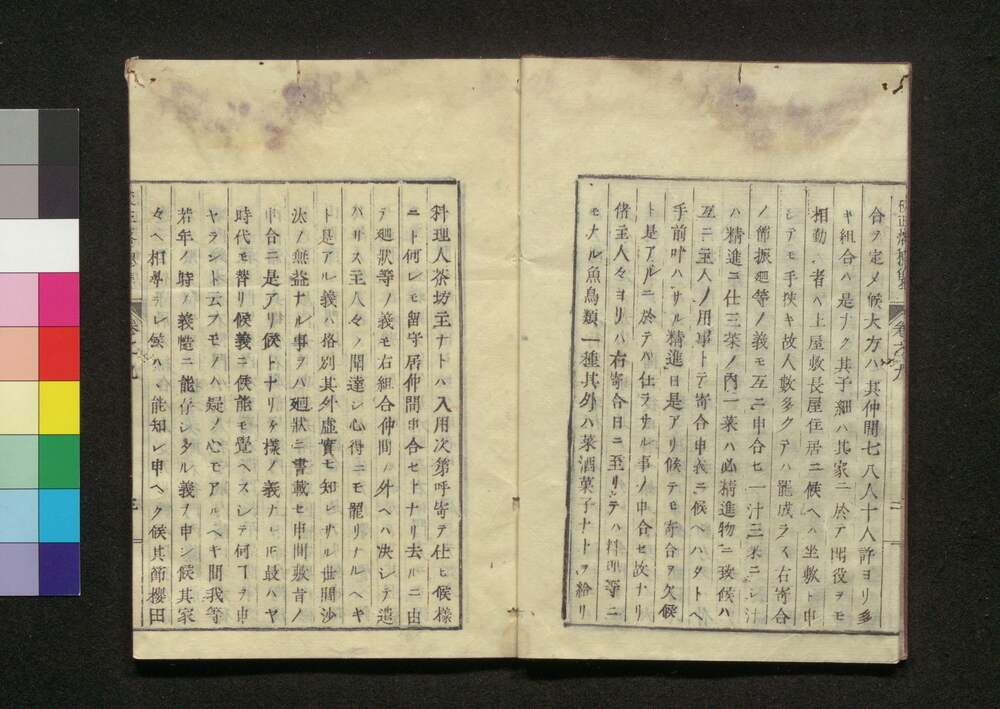 合ヲ定メ候大方ハ其仲間七八人十人許ヨリ多
キ組合ハ是ナク其子細ハ其家ニ於テ閙役ヲモ
相勤ル者ヘ上屋敷長屋住居ニ候ヘハ坐敷ト申
シテモ手挾キ故人數多クテハ罷成ラス右寄合
ノ節振廻等ノ義モ互ニ申合セ一汁三菜ニシ汁
ハ精進ニ仕三菜ノ内一菜ハ必精進物ニ致候ハ
互ニ主人ノ用事トテ寄合申義ニ候ヘハタトヘ
手前叶ハサル精進日是アリ候テモ寄合ヲ欠候
ト是アルニ於テハ仕ラサル事ノ申合セ故ナリ
偖主人々ヨリハ右寄合日ニ至リテハ料理等ニ
モナル魚鳥類一種其外ハ菜酒菓子ナトヲ給リ
料理人茶坊主ナトハ入用次第呼寄テ仕ヒ候樣
ニト何レモ留守居仲間申合セトナリ去ルニ由
テ廻狀等ノ義モ右組合仲間ノ外ヘハ决シテ遣
ハサス主人々々ノ聞達シ心得ニモ罷リナルヘキ
ト是アル義ハ格別其外虛實モ知レサル世間沙
汰ノ無益ナル事ヲハ廻狀ニ書載セ申間敷旨ノ
申合ニ是アリ候トナリケ樣ノ義ナレ𪜈最ハヤ
時代モ替リ候義ニ候能モ覺ヘスシテ何ヿヲ申
ヤラント云フモノハ疑ノ心モアルヘキ間我等
若年ノ時ノ義慥ニ能存シタル義ノ申シ候其家
々ヘ相尋テレ候ハヽ能知レ申ヘク候其節櫻田